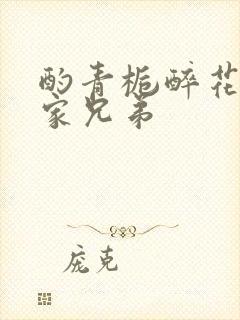 酌青栀醉花
家兄弟
庞克